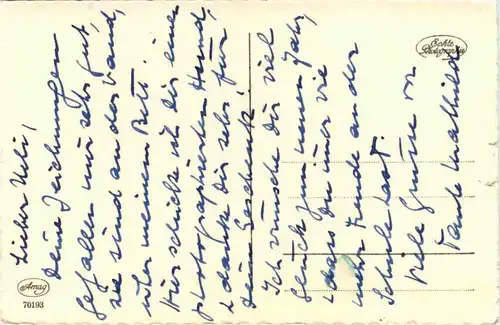 Lieber Uli,
Deine Zeichnungen
gefallen mir sehr gut,
sie sind an der Wand,
über meinem Bett.
Hier schicke ich Dir einen
photographierten Hund,
& danke Dir sehr für
Dein Geschenk!
Ich wünsche Dir viel
Glück zum neuen Jahr,
& dass Du immer viel
mehr Freude an der
Schule hast.
Viele Grüsse von
Tante Mathilde
Echte
Photographie
Amag
70193